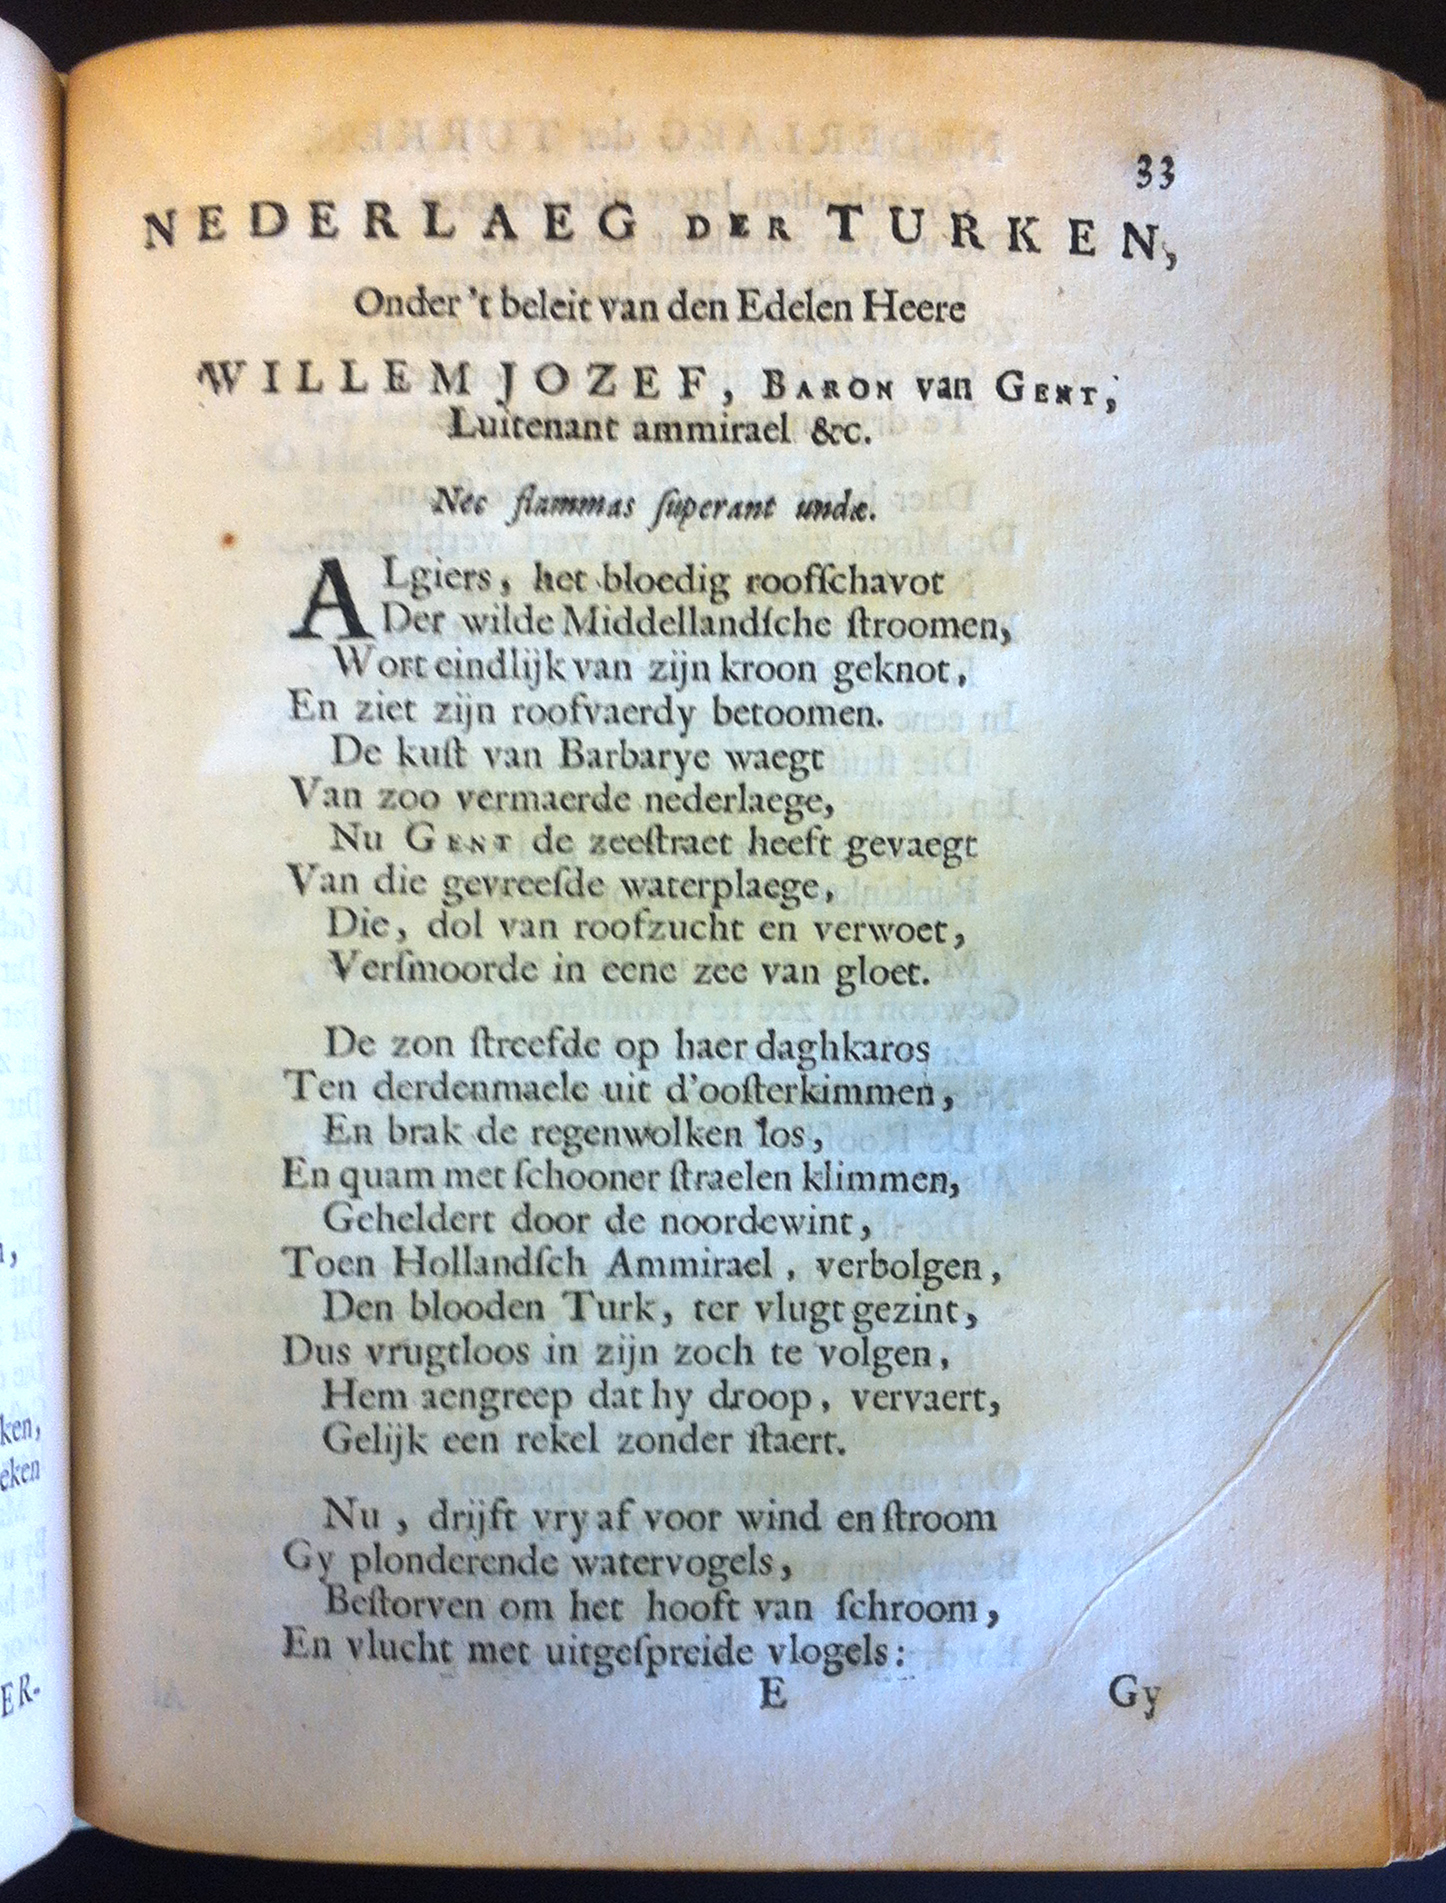 33
NEDERLAEG DER TURKEN,
Onder 't beleit van den Edelen Heere
WILLEM JOZEF, BARON van GENT,
Luitenant ammirael &c.
Nec flammas ſuperant undæ.
ALgiers, het bloedig roofſchavot
Der wilde Middellandſche ſtroomen,
Wort eindlijk van zijn kroon geknot,
En ziet zijn roofvaerdy betoomen.
De kuſt van Barbarye waegt
Van zoo vermaerde nederlaege,
Nu GENT de zeeſtraet heeft gevaegt
Van die gevreeſde waterplaege,
Die, dol van roofzucht en verwoet,
Verſmoorde in eene zee van gloet.
De zon ſtreefde op haer daghkaros
Ten derdenmaele uit d'ooſterkimmen,
En brak de regenwolken los,
En quam met ſchooner ſtraelen klimmen,
Geheldert door de noordewint,
Toen Hollandſch Ammirael, verbolgen,
Den blooden Turk, ter vlugt gezint,
Dus vrugtloos in zijn zoch te volgen,
Hem aengreep dat hy droop, vervaert,
Gelijk een rekel zonder ſtaert.
Nu, drijft vry af voor wind en ſtroom
Gy plonderende watervogels,
Beſtorven om het hooft van ſchroom,
En vlucht met uitgeſpreide vlogels:
E Gy
ken,
eken
ER-